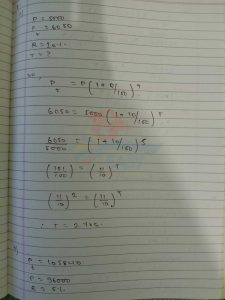 P = 5000
P = 6050
t
R = 10%
T = ?
P = P (1 + 10/100)^T
t
6050 = 5000 (1 + 10/100)^T
6050/5000 = (1 + 10/100)^5
(121/100) = (11/10)^T
(11/10)^2 = (11/10)^T
∴ T = 2 yrs.
P = 105840
t
P = 96000
R = 5%